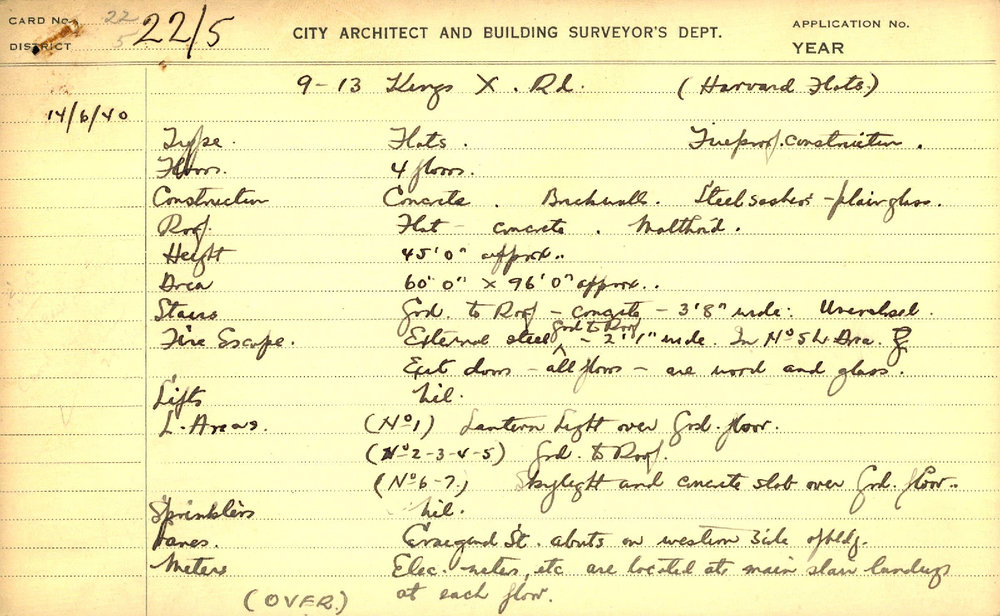 CARD No. 22/5 22/5 CITY ARCHITECT AND BUILDING SURVEYOR'S DEPT. APPLICATION No.
DISTRICT YEAR
9-13 Kings X. Rd. (Harvard Flats.)
14/6/40
Type. Flats. Fireproof. construction.
Floors. 4 floors.
Construction Concrete. Brickwall. Steel sashes - plain glass.
Roof. Flat - concrete. Malthoid.
Height 45'0" approx..
Area 60'0" x 96'0" approx..
Stairs Grd. to Roof - concrete - 3'8" wide. Unenclosed.
grd to Roof
Fire Escape. External steel - 2'1" wide. In No 5 L. Area.
Exit doors - all floors - are wood and glass.
Lifts Nil.
L. Areas. (No 1) Lantern Light over Grd. floor.
(No 2-3-4-5) Grd. to Roof.
(No 6-7) Skylight and concrete slab over Grd. floor..
Sprinklers Nil.
Lanes. Craigend St. abuts on western side of bldg.
Meters Elec. meters, etc are located at main stair landings
at each floor.
(OVER.)